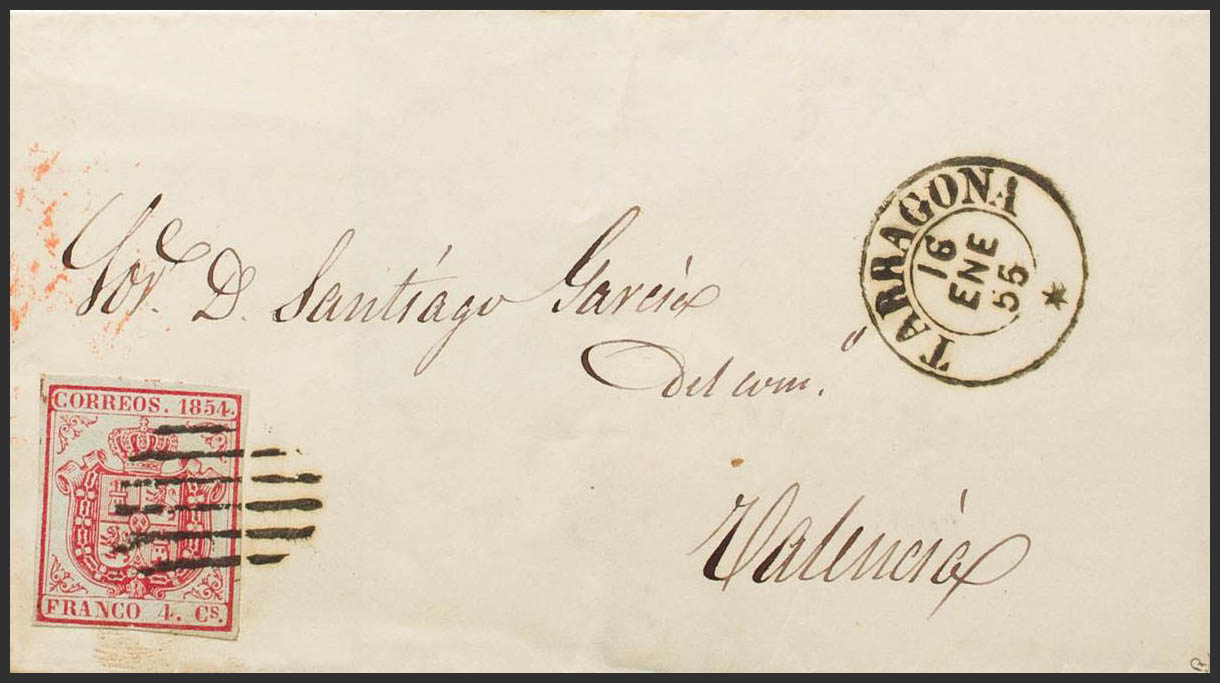 TARRAGONA
16
ENE
55
Sor. D. Santiago García
del com.º
Valencia
CORREOS. 1854.
FRANCO 4. Cs.